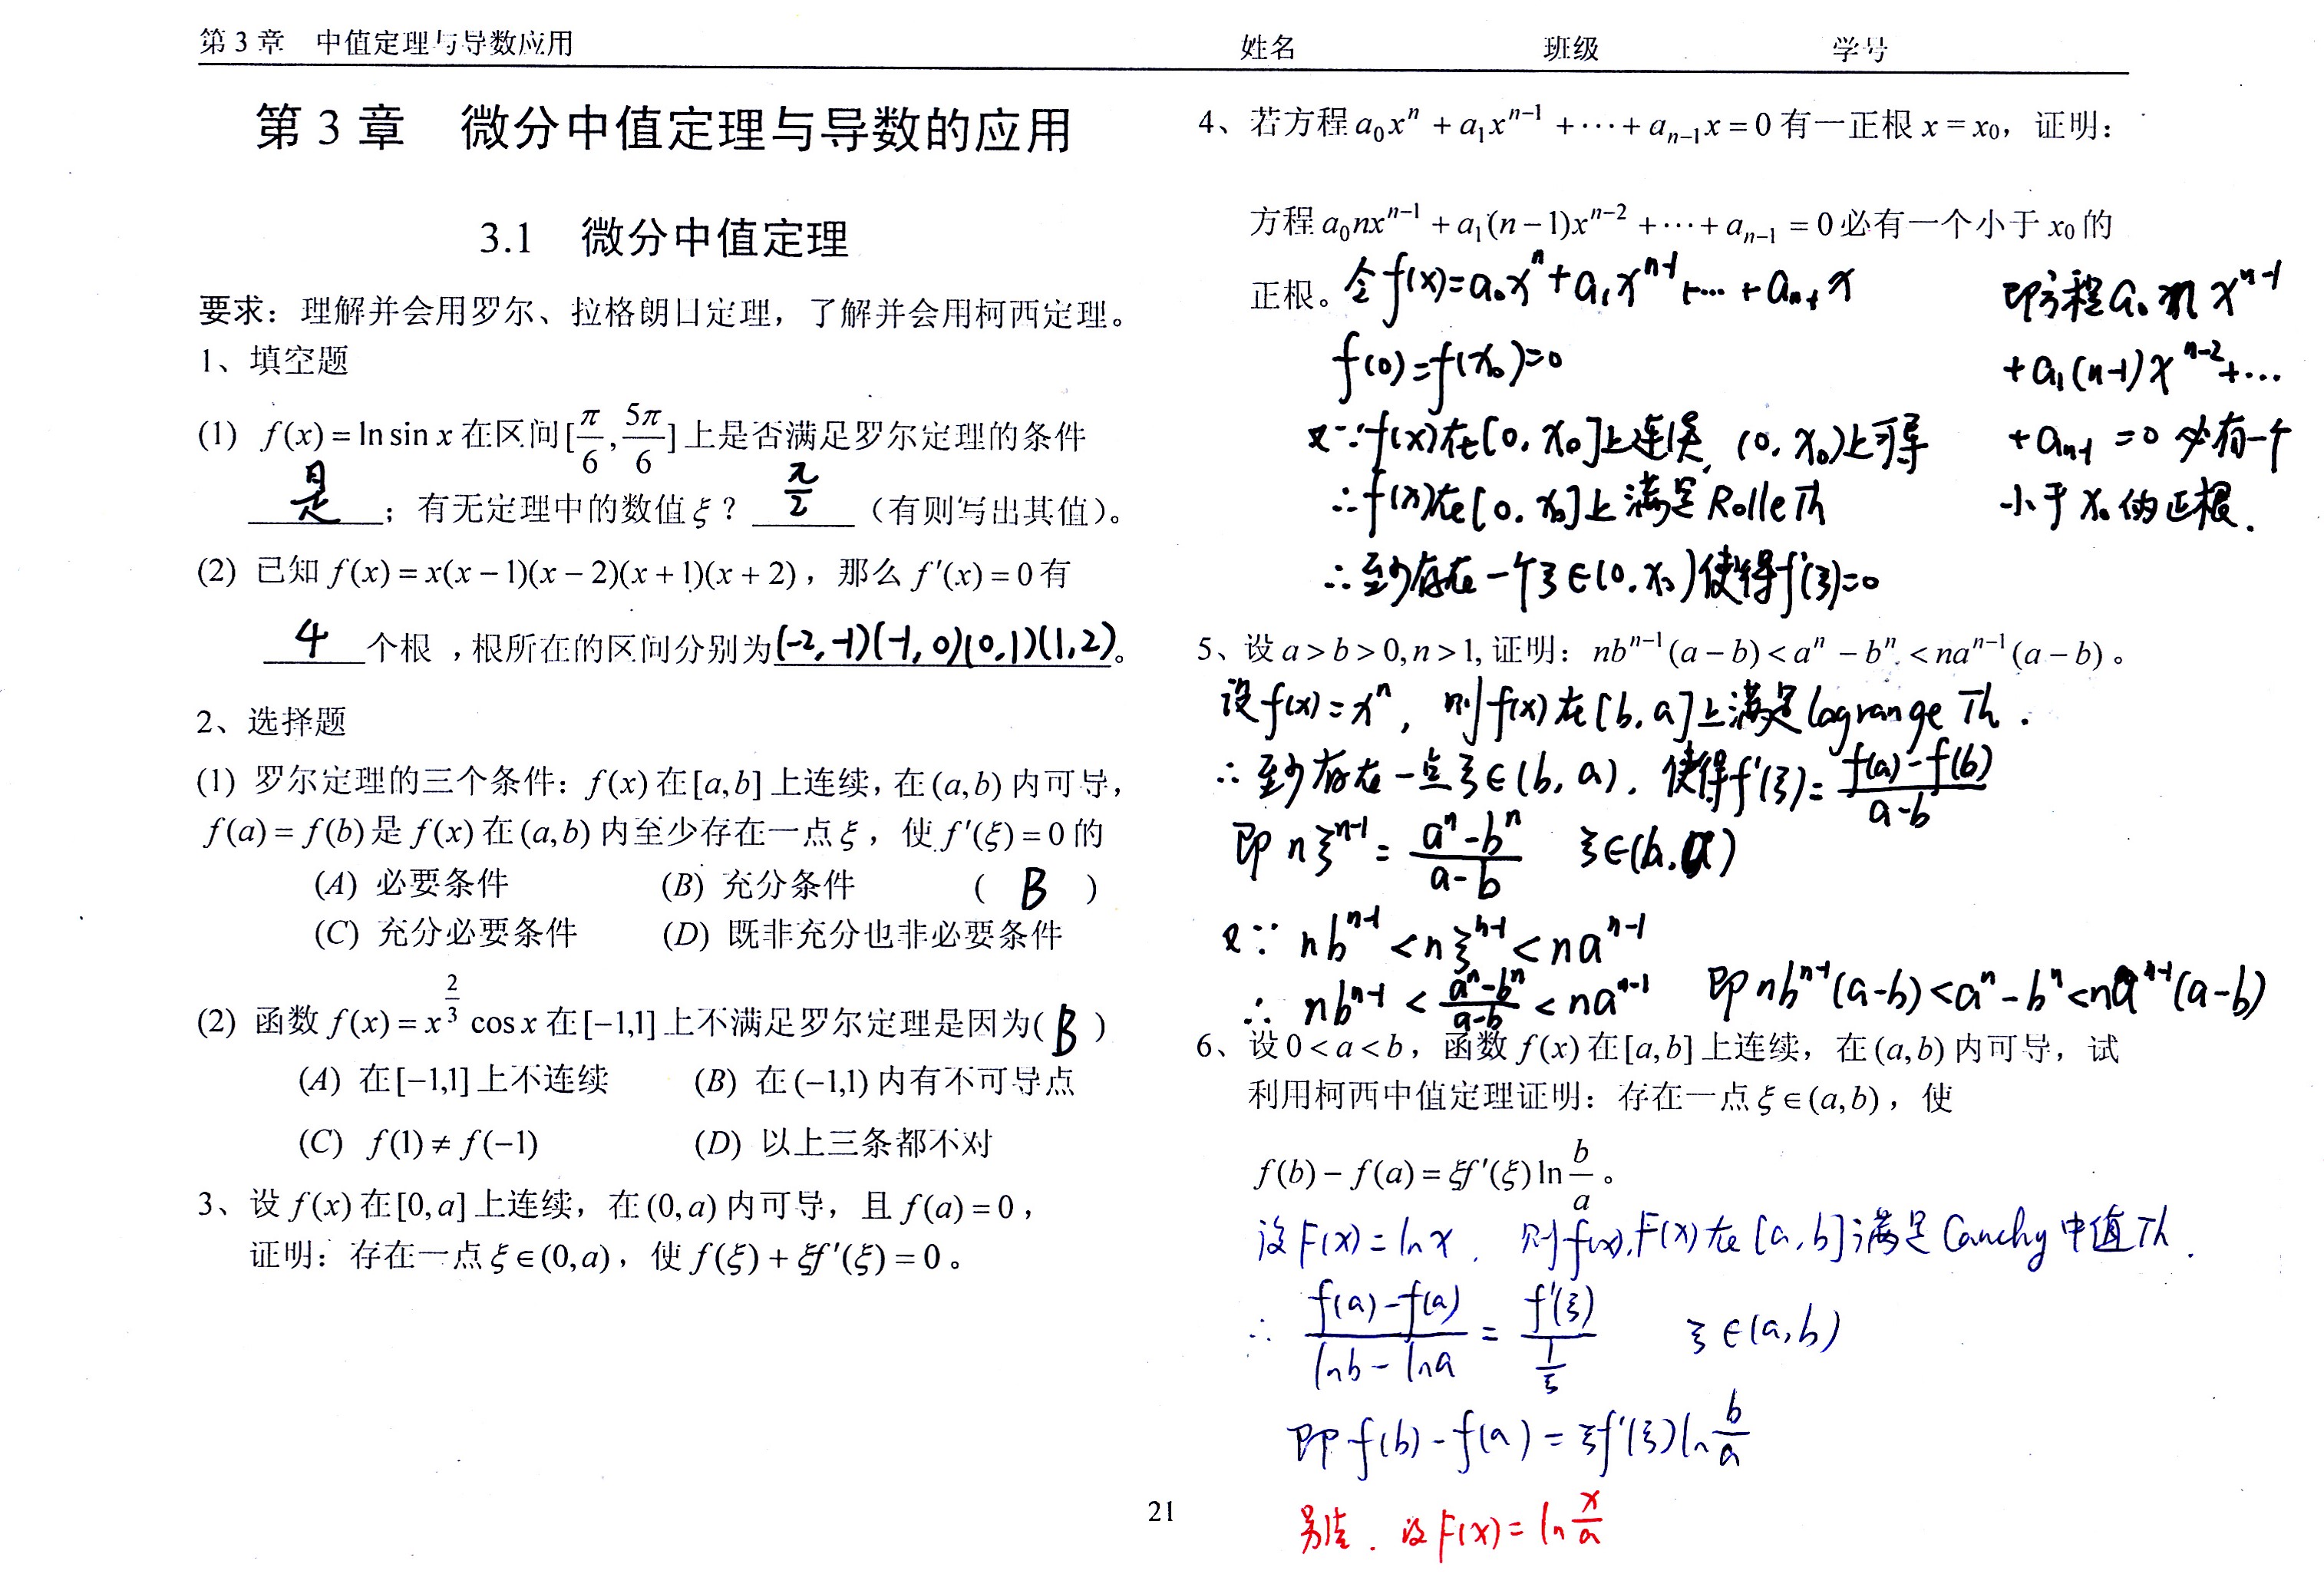 第 3 章 中值定理与导数应用 姓名 班级 学号
第 3 章 微分中值定理与导数的应用
3.1 微分中值定理
要求：理解并会用罗尔、拉格朗日定理，了解并会用柯西定理。
1、填空题
(1) f(x) = ln sin x 在区间[π/6, 5π/6]上是否满足罗尔定理的条件
是 ；有无定理中的数值ξ？ π/2 （有则写出其值）。
(2) 已知 f(x) = x(x−1)(x−2)(x+1)(x+2)，那么 f′(x) = 0 有
4 个根 ，根所在的区间分别为(-2,-1)(-1,0)(0,1)(1,2)。
2、选择题
(1) 罗尔定理的三个条件：f(x)在[a,b]上连续，在(a,b)内可导，
f(a) = f(b)是 f(x)在(a,b)内至少存在一点ξ，使 f′(ξ) = 0 的
(A) 必要条件 (B) 充分条件 ( B )
(C) 充分必要条件 (D) 既非充分也非必要条件
(2) 函数 f(x) = x^(2/3) cos x 在[−1,1]上不满足罗尔定理是因为( B )
(A) 在[−1,1]上不连续 (B) 在(−1,1)内有不可导点
(C) f(1) ≠ f(−1) (D) 以上三条都不对
3、设 f(x)在[0,a]上连续，在(0,a)内可导，且 f(a) = 0，
证明：存在一点ξ∈(0,a)，使 f(ξ) + ξf′(ξ) = 0。
4、若方程 a₀xⁿ + a₁xⁿ⁻¹ + ⋯ + aₙ₋₁x = 0 有一正根 x = x₀，证明：
方程 a₀nxⁿ⁻¹ + a₁(n−1)xⁿ⁻² + ⋯ + aₙ₋₁ = 0 必有一个小于 x₀ 的
正根。 令 f(x)=a₀xⁿ+a₁xⁿ⁻¹+…+aₙ₋₁x
f(0)=f(x₀)=0
又∵f(x)在[0, x₀]上连续, (0, x₀)上可导
∴f(x)在[0, x₀]上满足 Rolle Th
∴至少存在一个ξ∈(0, x₀)使得f′(ξ)=0
即方程a₀nxⁿ⁻¹
+a₁(n-1)xⁿ⁻²+…
+aₙ₋₁=0 必有一个
小于 x₀ 的正根.
5、设 a > b > 0, n > 1, 证明：nbⁿ⁻¹(a−b) < aⁿ − bⁿ < naⁿ⁻¹(a−b)。
设 f(x)=xⁿ, 则 f(x) 在[b, a]上满足 lagrange Th .
∴ 至少存在一点ξ∈(b, a). 使得f′(ξ)=(f(a)-f(b))/(a-b)
即 nξⁿ⁻¹ = (aⁿ-bⁿ)/(a-b) ξ∈(b, a)
又∵ nbⁿ⁻¹ < nξⁿ⁻¹ < naⁿ⁻¹
∴ nbⁿ⁻¹ < (aⁿ-bⁿ)/(a-b) < naⁿ⁻¹ 即 nbⁿ⁻¹(a-b)<aⁿ-bⁿ<naⁿ⁻¹(a-b)
6、设 0 < a < b，函数 f(x)在[a,b]上连续，在(a,b)内可导，试
利用柯西中值定理证明：存在一点ξ∈(a,b)，使
f(b) − f(a) = ξf′(ξ) ln b/a。
设 F(x) = ln x . 则 f(x), F(x) 在 [a, b] 满足 Cauchy 中值 Th .
∴ (f(a)-f(a))/(ln b - ln a) = f′(ξ)/(1/ξ) ξ∈(a, b)
即 f(b) - f(a) = ξf′(ξ) ln b/a
另法 . 设 F(x) = ln x/a
21